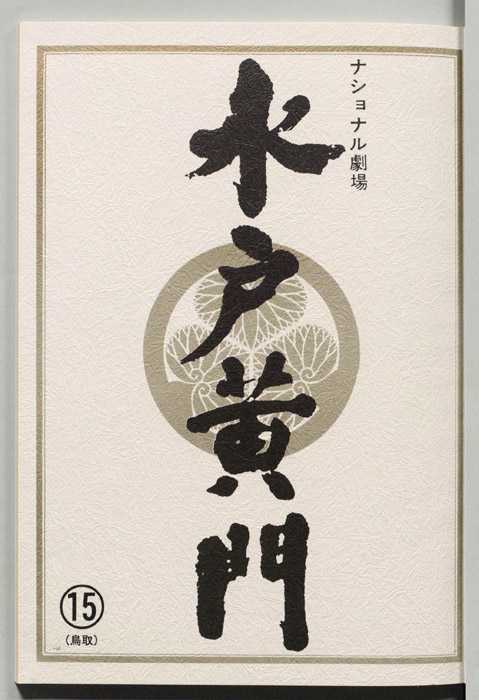 ナショナル劇場
水戸黄門
⑮
（鳥取）